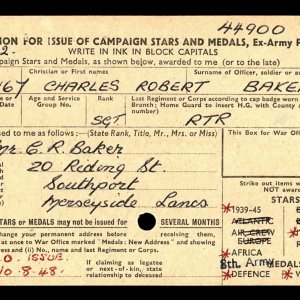 44900
ION FOR ISSUE OF CAMPAIGN STARS AND MEDALS, Ex-Army P
WRITE IN INK IN BLOCK CAPITALS
paign Stars and Medals, as shown below, awarded to me (or to the late)
Christian or First names
Surname of Officer, soldier or
467 CHARLES ROBERT BAKE
Age and Service Group No.
Rank
Last Regiment or Corps (according to cap badge worn
Home Guard to insert H.G. with County and
SGT
RTR
d to:—
(State Rank, Title, Mr., Mrs. or Miss)
This Box for War Offi
Mr. C. R. Baker
20 Riding St.
Southport
Merseyside Lancs
Strike out items
NOT
STARS
*1939-45
ATLANTIC
AIR CREW
EUROPE
*AFRICA
8th. Army
*DEFENCE
MEDALS
STARS or MEDALS may not be issued for SEVERAL MONTHS
change in your permanent address before they are
once to War Office marked " Medals; New Address" and showing
ress and (ii) No., name and last Regiment or Corps.
O. ISSUE.
10.8.48.
If claiming as legatee
or next-of-kin, state
relationship to deceased